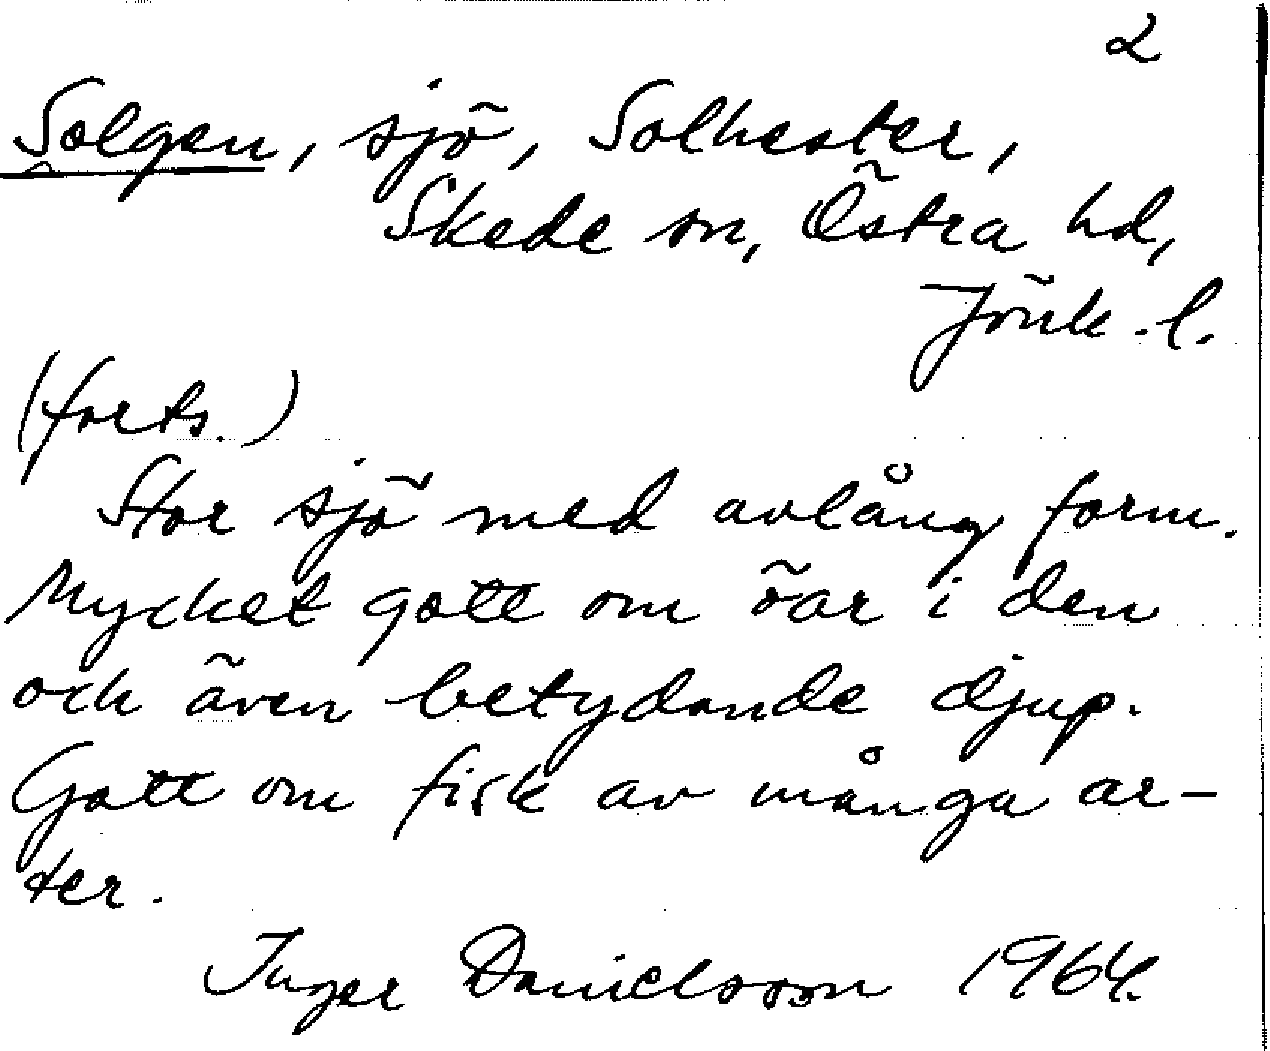 2
Solgen, sjö, Solhester,
Skede sn, Östra hd,
Jönk. l.
(forts.)
Stor sjö med avlång form.
Mycket gott om öar i den
och även betydande djup.
Gott om fisk av många ar-
ter.
Inger Danielsson 1964.